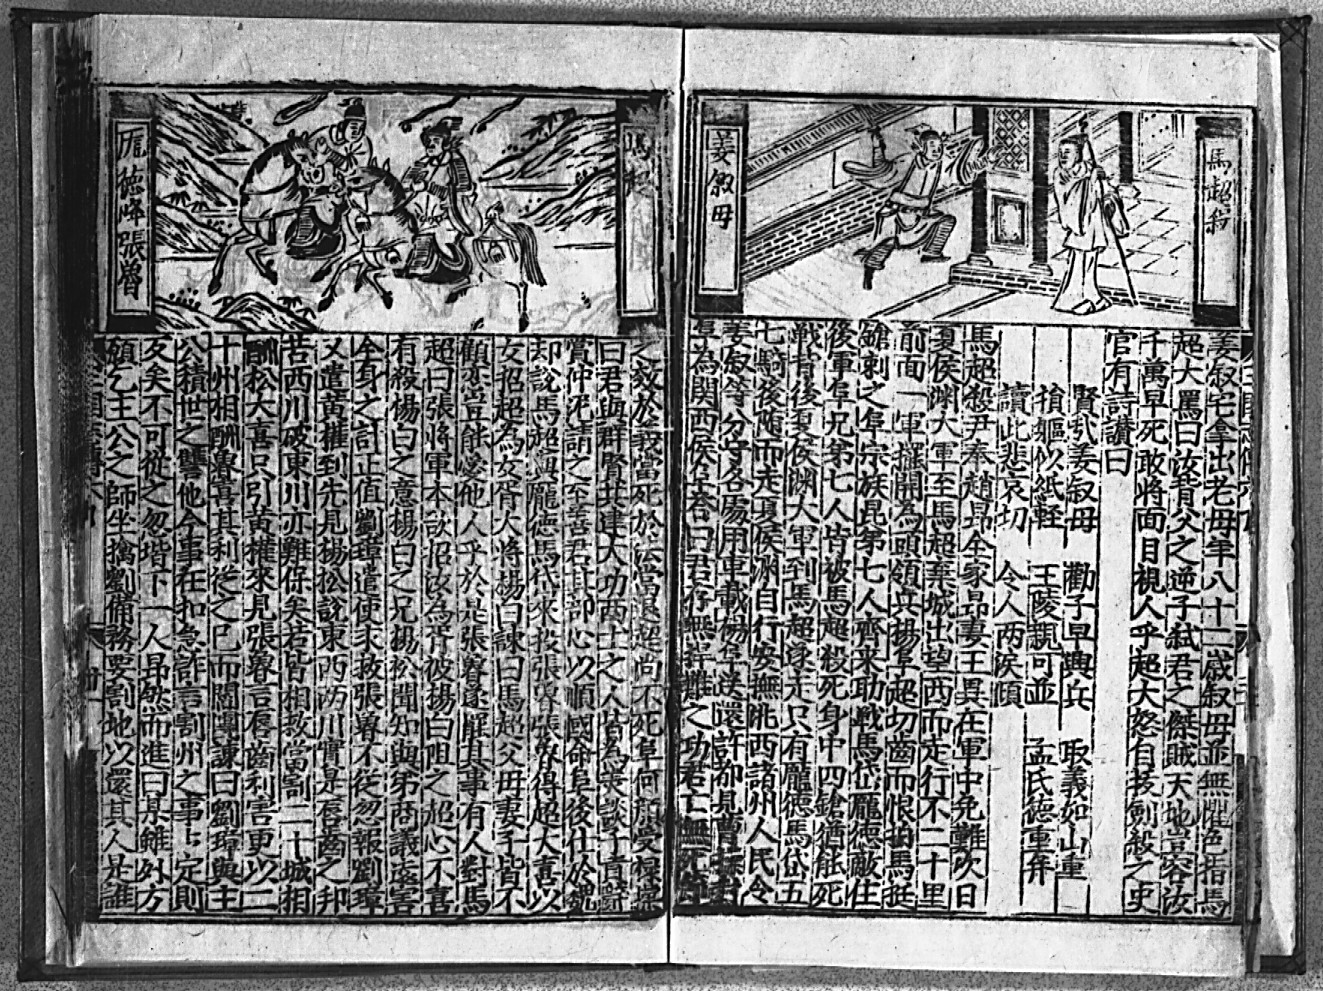 馬超殺
姜敘母
姜叙宅拿出老母年八十二歲叙母並無懼色指馬
超大罵曰汝背父之逆子弒君之傑賊天地豈容汝
千萬早死敢將面目視人乎超大怒自拔劍殺之史
官有詩讃曰
賢哉姜叙母 勸子早興兵 取義如山重
捨軀似紙輕 王陵親可並 孟氏德重幷
讀此悲哀切 令人兩淚傾
馬超殺尹奉趙昂全家昂妻王異在軍中免難次日
夏侯渊大軍至馬超棄城出望西而走行不二十里
前面一軍擺開為頭領兵楊阜超切齒而恨拍馬挺
鎗刺之阜宗族昆弟七人齊來助戰馬岱龐德敵住
後軍阜兄弟七人皆被馬超殺死身中四鎗猶能死
戰背後夏侯渊大軍到馬超遂走只有龐德馬岱五
七騎後随而走夏侯渊自行安撫隴西諸州人民令
姜叙等分守各處用車載楊阜送還許都見曹操
為関西侯阜荅曰君存無扞難之功君亡無死節
之效於義當死於法當誅超尚不死阜何顔受祿操
曰君與群賢共建大功西土之人皆為美談子貢辭
賞仲尼謂之至善君其剖心以順國命阜後仕於魏
却說馬超與龐德馬岱來投張魯張魯得超大喜以
女招超為女壻大將楊白諫曰馬超父母妻子皆不
顧恋豈能愛他人乎於是張魯遂罷其事有人對馬
超曰張將軍本欲招汝為壻被楊白阻之超心不喜
有殺楊白之意楊白之兄楊松聞知與弟商議遠害
全身之計正值劉璋遣使求救張魯不従忽報劉璋
又遣黃權到先見楊松說東西兩川實是唇齒之邦
苦西川破東川亦難保矣若皆相救當割二十城相
酬松大喜只引黃權來見張魯言唇齒利害更以二
十州相酬魯喜其利従之巴西閻圃諫曰劉璋與主
公積世之讐他今事在扣急詐言割州之事上定則
反矣不可従之忽堦下一人昂然而進曰某雖外方
頋乞主公之師坐擒劉備務要割地以還其人是誰
馬超
龐德峰張魯